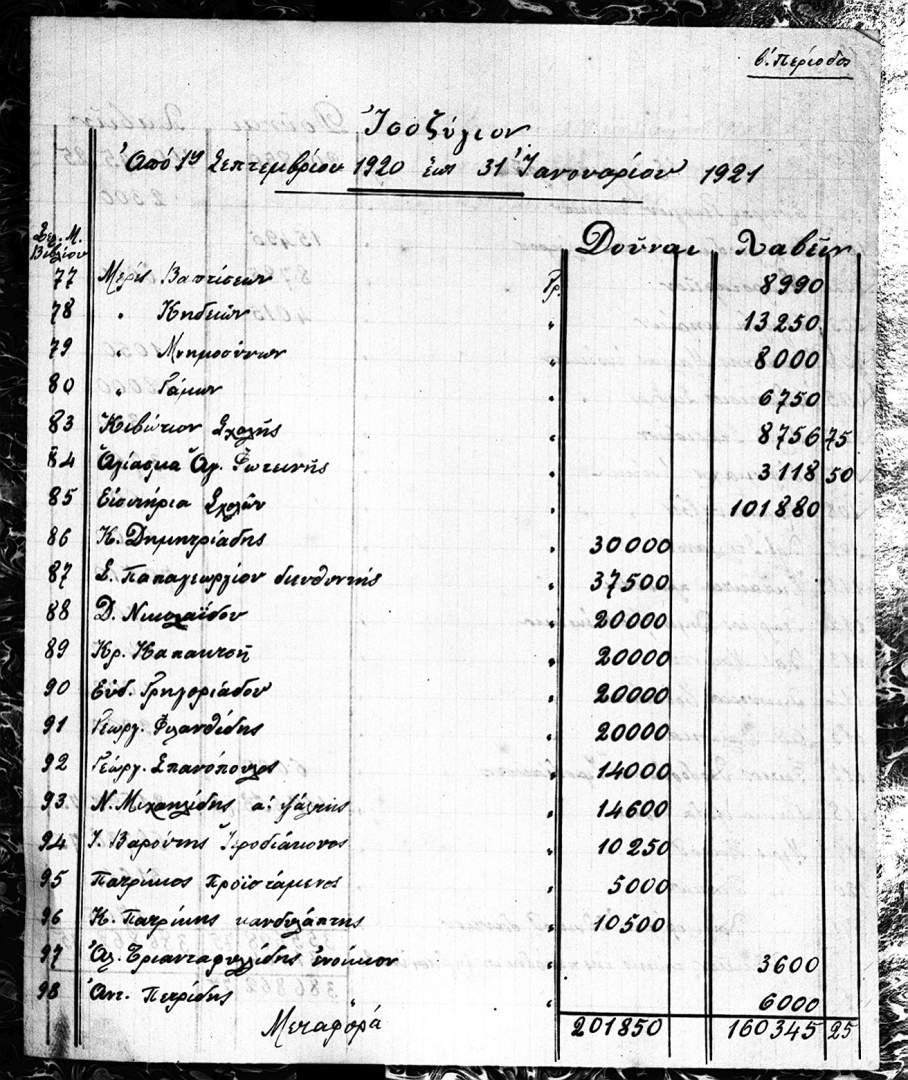 β΄. Περίοδος
Ἰσοζύγιον
Ἀπό 1ης Σεπτεμβρίου 1920 ἕως 31 Ἰανουαρίου 1921
Σελ. Μ. Βιβλίου Δοῦναι Λαβεῖν
77 Μερίς Βαπτίσεων Γρ. 8990
78 " Κηδειῶν " 13250
79 " Μνημοσύνων " 8000
80 " Γάμων " 6750
83 Κιβώτιον Σχολῆς " 8756 75
84 Ἁγίασμα Ἁγ. Φωτεινῆς " 3118 50
85 Εἰσιτήρια Σχολῶν " 101880
86 Κ. Δημητριάδης " 30000
87 Σ. Παπαγεωργίου διευθυντής " 37500
88 Δ. Νικολαΐδου " 20000
89 Κρ. Καπακτσῆ " 20000
90 Εὐδ. Γρηγοριάδου " 20000
91 Γεωργ. Φιλανθίδης " 20000
92 Γεώργ. Σπανόπουλος " 14000
93 Ν. Μιχαηλίδης α΄. ψάλτης " 14600
94 Ι. Βαρούτης Ἱεροδιάκονος " 10250
95 Πατρίκιος Προϊστάμενος " 5000
96 Κ. Πατρίκης κανδυλάπτης " 10500
97 Ἀλ. Τριανταφυλλίδης ἐνοίκιον " 3600
98 Ἀντ. Πετρίδης " 6000
Μεταφορά 201850 160345 25